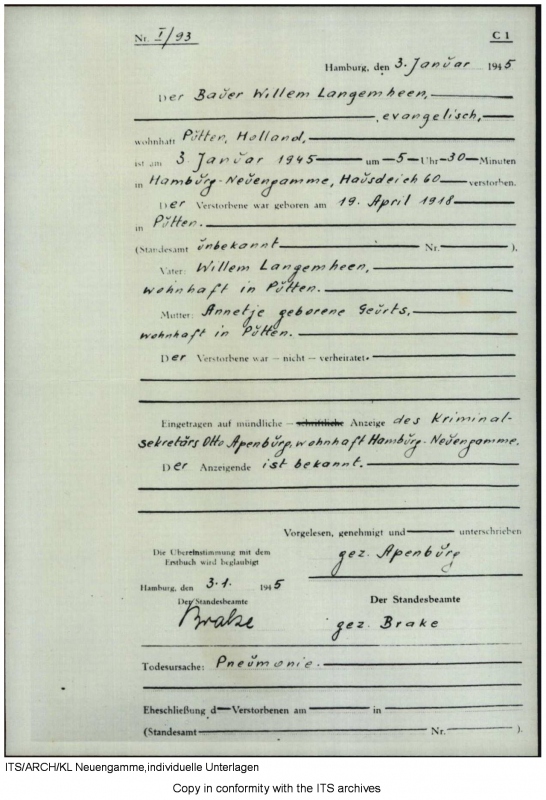 Nr. I/93 C 1
Hamburg, den 3. Januar 1945
Der Bauer Willem Langemheen,
evangelisch,
wohnhaft Pütten, Holland,
ist am 3. Januar 1945 um 5 Uhr 30 Minuten
in Hamburg-Neuengamme, Hausdeich 60 verstorben.
Der Verstorbene war geboren am 19. April 1918
in Pütten.
(Standesamt unbekannt Nr. ).
Vater: Willem Langemheen,
wohnhaft in Pütten.
Mutter: Annetje geborene Geurts,
wohnhaft in Pütten.
Der Verstorbene war – nicht – verheiratet.
Eingetragen auf mündliche – schriftliche Anzeige des Kriminal-
sekretärs Otto Apenburg, wohnhaft Hamburg-Neuengamme.
Der Anzeigende ist bekannt.
Vorgelesen, genehmigt und unterschrieben
Die Übereinstimmung mit dem
Erstbuch wird beglaubigt
gez. Apenburg
Hamburg, den 3.1. 1945
Der Standesbeamte Der Standesbeamte
Brake gez. Brake
Todesursache: Pneumonie.
Eheschließung d Verstorbenen am in
(Standesamt Nr. ).
ITS/ARCH/KL Neuengamme,individuelle Unterlagen
Copy in conformity with the ITS archives